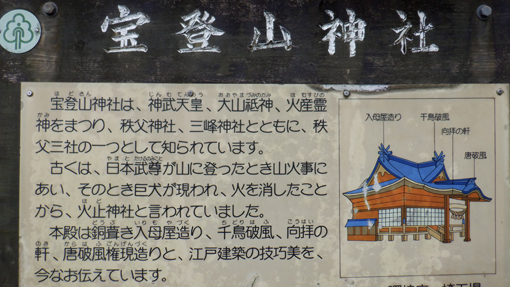 宝登山神社
宝登山神社は、神武天皇、大山祗神、火産霊
神をまつり、秩父神社、三峰神社とともに、秩
父三社の一つとして知られています。
古くは、日本武尊が山に登ったとき山火事に
あい、そのとき巨犬が現われ、火を消したこと
から、火止神社と言われていました。
本殿は銅葺き入母屋造り、千鳥破風、向拝の
軒、唐破風権現造りと、江戸建築の技巧美を、
今なお伝えています。
入母屋造り
千鳥破風
向拝の軒
唐破風